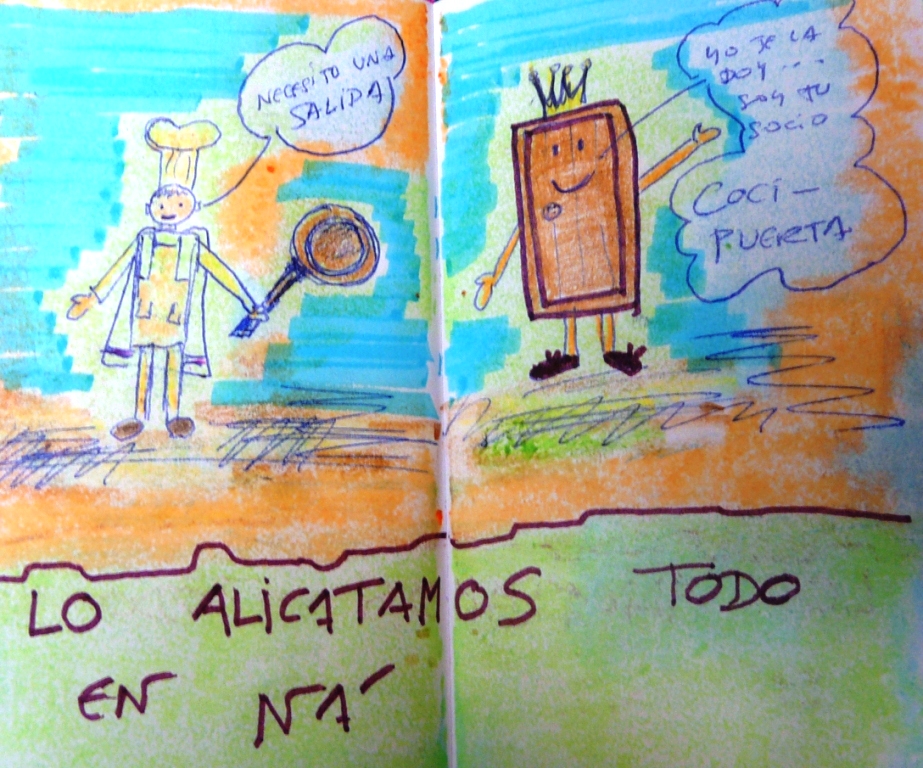 NECESITO UNA
SALIDA
YO TE LA
DOY...
SOY TU
SOCIO
COCI-
PUERTA
LO ALICATAMOS TODO
EN NÁ